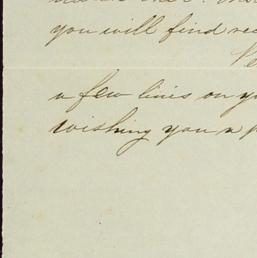 you will find rec
a few lines on yo
wishing you a p